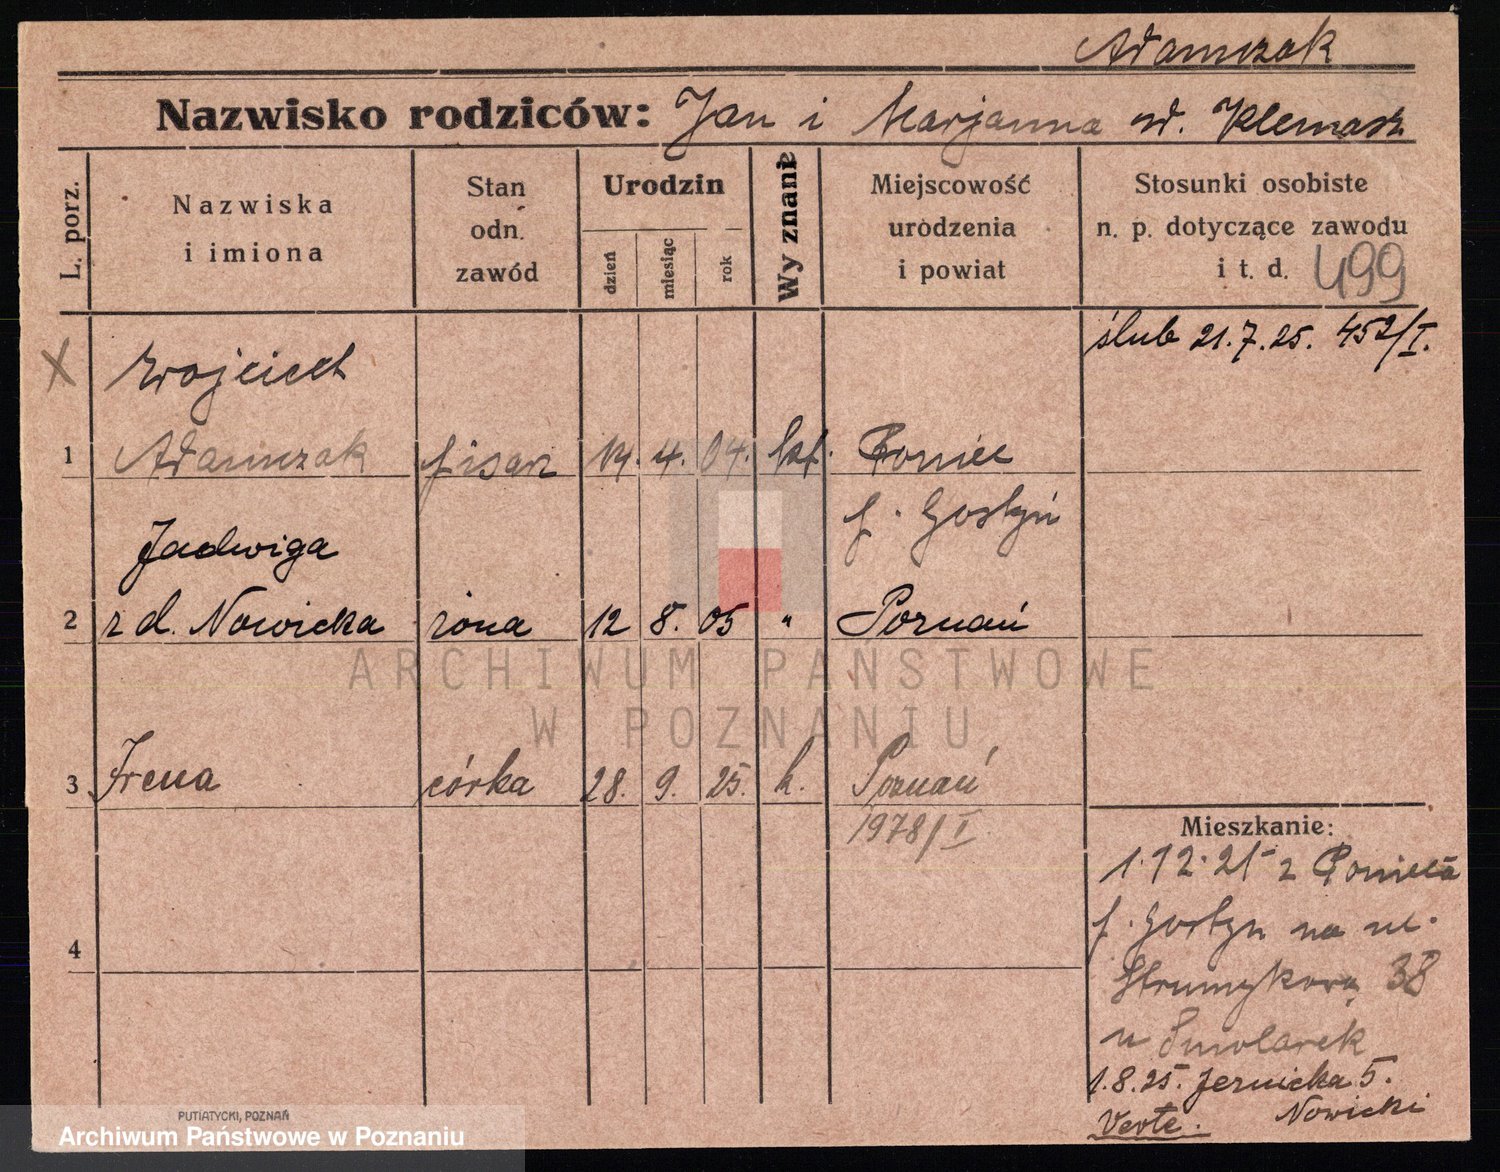 Adamczak
Nazwisko rodziców: Jan i Marjanna ur. Klemasz
L. porz.
Nazwiska
i imiona
Stan
odn.
zawód
Urodzin
dzień
miesiąc
rok
Wy znanie
Miejscowość
urodzenia
i powiat
Stosunki osobiste
n. p. dotyczące zawodu
i t. d. 499
X
Wojciech
ślub 21.7.25. 452/I.
1 Adamczak pisarz 14. 4. 04. kat. Poniec
p. Gostyń
Jadwiga
2 z d. Nowicka żona 12 8. 05 " Poznań
3 Irena córka 28. 9. 25. k. Poznań
1978/I
4
Mieszkanie:
1.12.21 z Ponieca
p. Gostyn na ul.
Strumykowa 38
u Smolarek
1.8.25. Jeżnicka 5.
Nowicki
Verte.
PUTIATYCKI, POZNAŃ
ARCHIWUM PAŃSTWOWE
W POZNANIU
Archiwum Państwowe w Poznaniu